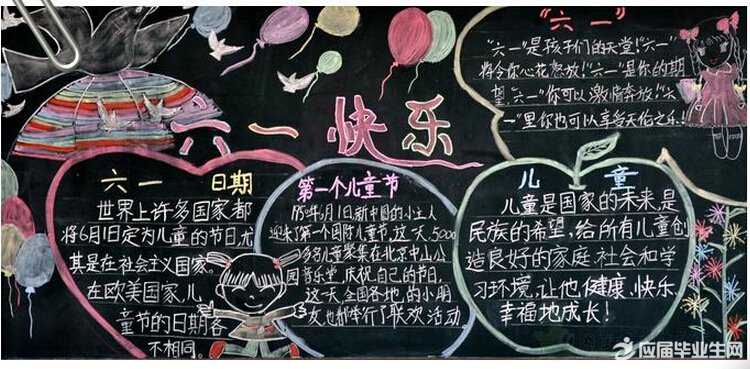 六一快乐
"六一"
"六一"是孩子们的天堂!"六一"
将令你心花怒放!"六一"是你的期
望,"六一"你可以激情奔放!"六
一"里你也可以享受天伦之乐!
六一 日期
世界上许多国家都
将6月1日定为儿童的节日,尤
其是在社会主义国家。
在欧美国家,儿
童节的日期各
不相同。
第一个儿童节
1950年6月1日新中国的小主人
迎来了第一个国际儿童节,这一天,5000
多名儿童聚集在北京中山公
园音乐堂,庆祝自己的节日,
这一天,全国各地的小朋
友也都举行了联欢活动
儿童
儿童是国家的未来,是
民族的希望,给所有儿童创
造良好的家庭、社会和学
习环境,让他健康、快乐、
幸福地成长!
应届毕业生网